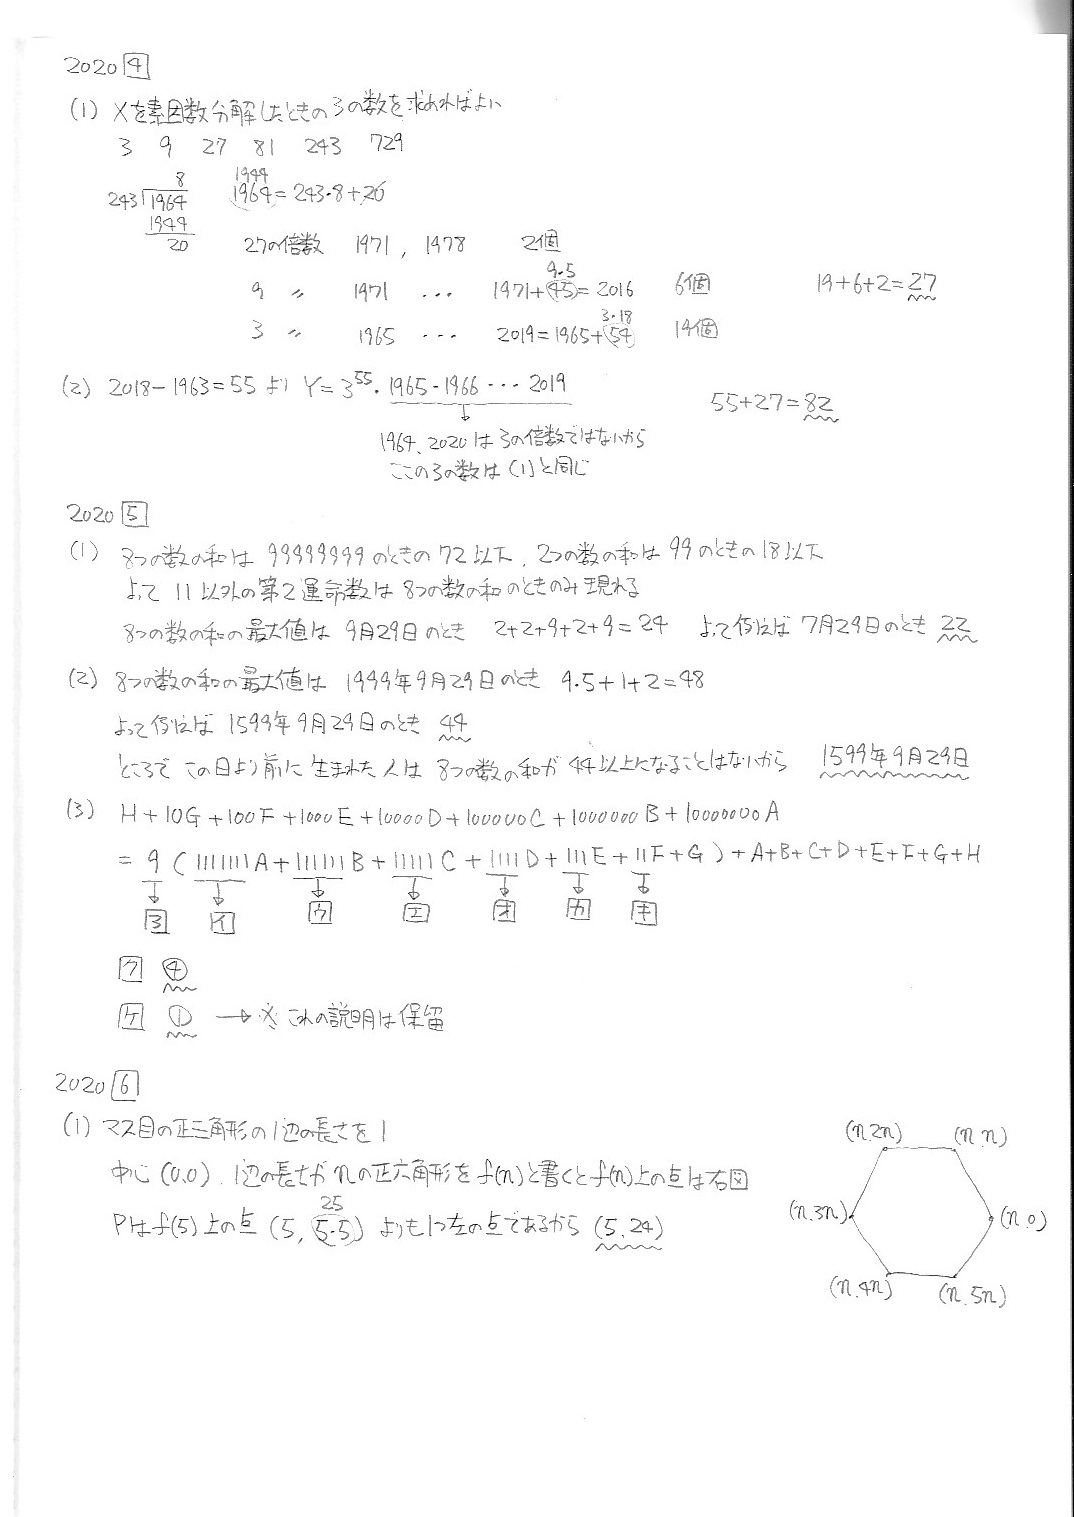 2020 4
(1) Xを素因数分解したときの3の数を求めればよい
3 9 27 81 243 729
8
243 1964
1944
20
1944
1964=243・8+20
27の倍数 1971, 1978 2個
9・5
9 〃 1971 ... 1971+45=2016 6個 19+6+2=27
3・18
3 〃 1965 ... 2019=1965+54 19個
(2) 2018-1963=55 より Y=3^55・1965・1966 ... 2019 55+27=82
1964、2020は3の倍数ではないから
ここの3の数は(1)と同じ
2020 5
(1) 8つの数の和は 99999999のときの72以下、2つの数の和は99のときの18以下
よって 11以外の第2運命数は8つの数の和のときのみ現れる
8つの数の和の最大値は 9月29日のとき 2+2+9+2+9=24 よって例えば 7月29日のとき 22
(2) 8つの数の和の最大値は 1999年9月29日のとき 9・5+1+2=48
よって例えば 1599年9月29日のとき 44
ところで この日より前に生まれた人は 8つの数の和が44以上になることはないから 1599年9月29日
(3) H+10G+100F+1000E+10000D+100000C+1000000B+10000000A
=9(1111111A+111111B+11111C+1111D+111E+11F+G)+A+B+C+D+E+F+G+H
ヨ イ ウ エ オ カ キ
ク ④
ケ ① → ※これの説明は保留
2020 6
(1) マス目の正三角形の1辺の長さを1
中心(0,0)、1辺の長さがnの正六角形をf(n)と書くとf(n)上の点は右図
25
Pはf(5)上の点(5, 5・5)よりも1つ左の点であるから (5,24)
(n,2n) (n,n)
(n,3n) (n,0)
(n,4n) (n,5n)